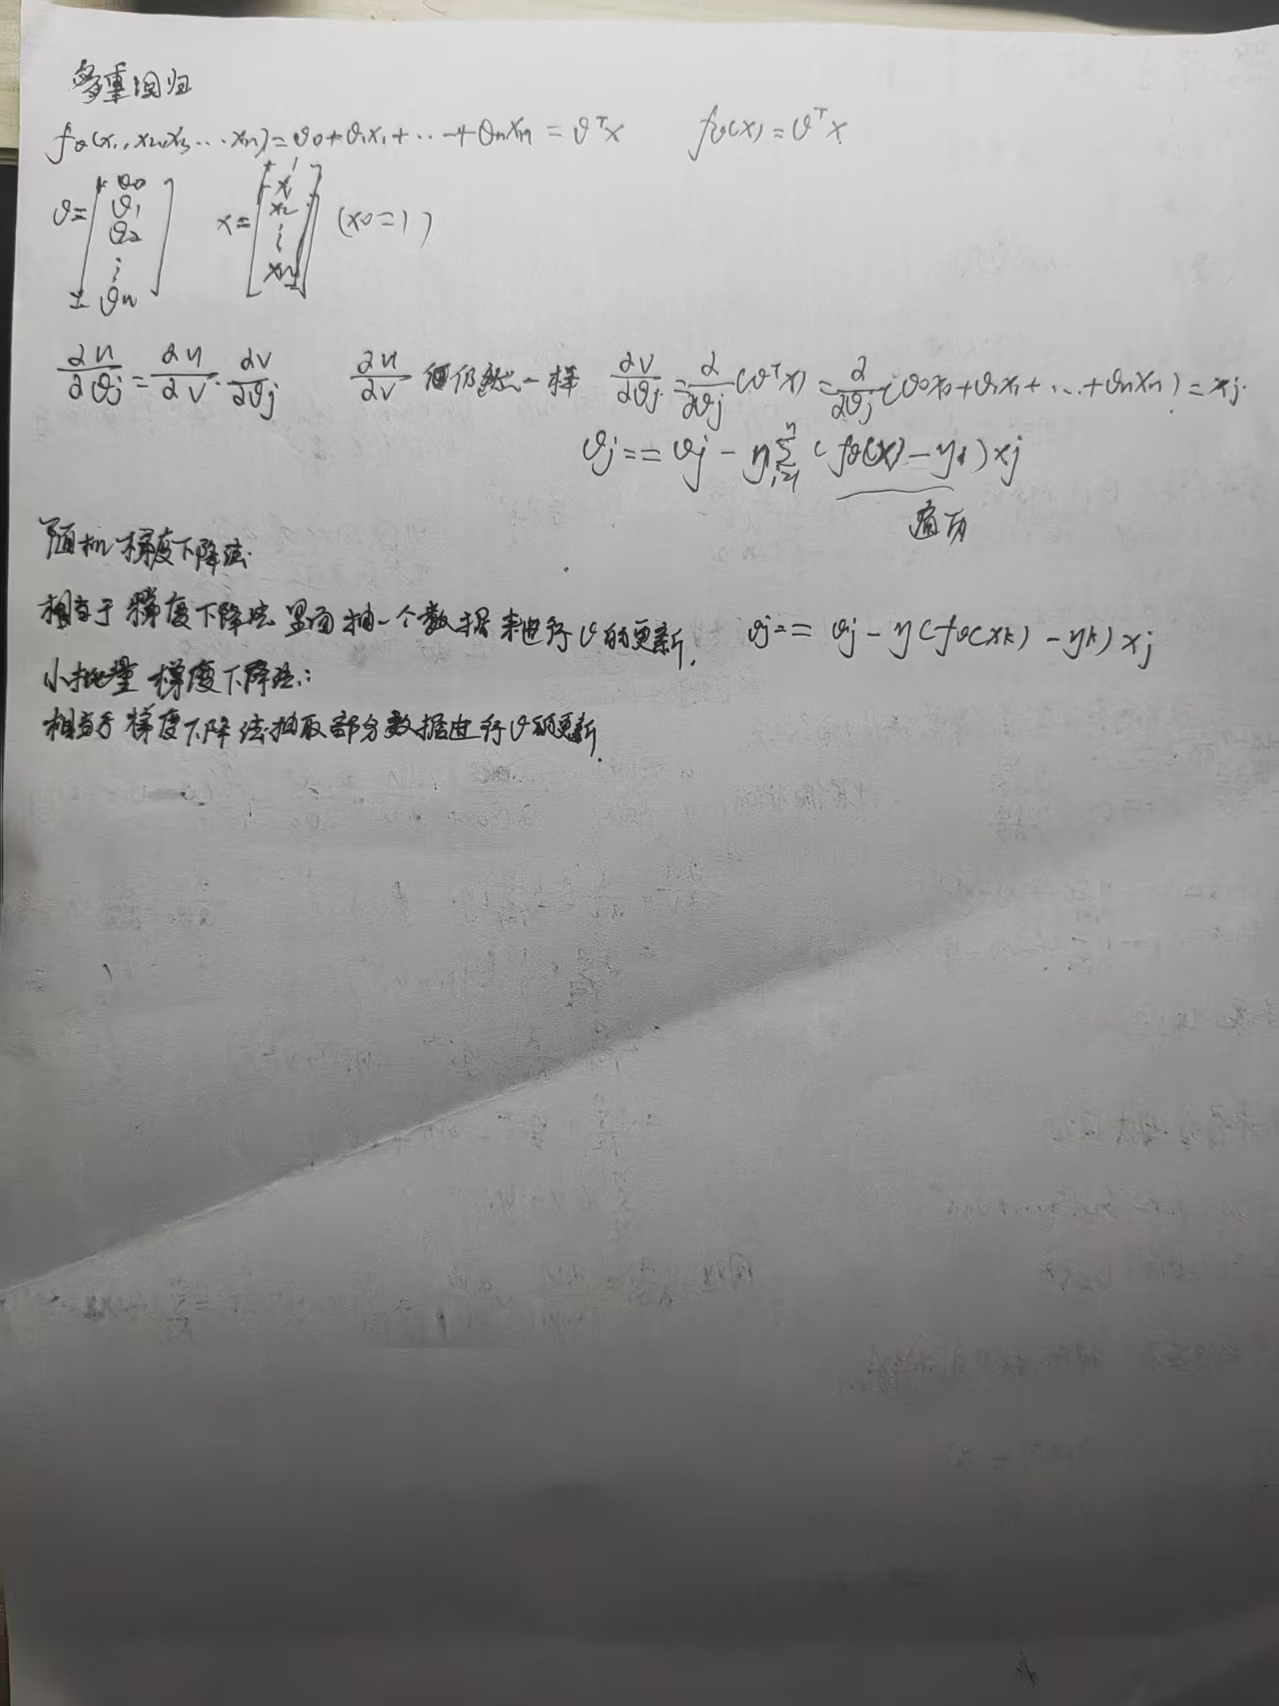 多重回归
fθ(x1,x2,x3...xn)=θ0+θ1x1+...+θnxn=θᵀx fθ(x)=θᵀx
θ=[θ0 θ1 θ2 ⋮ θn] x=[1 x1 x2 ⋮ xn] (x0=1)
∂u/∂θj=∂u/∂v·∂v/∂θj ∂u/∂v 仍然一样 ∂v/∂θj=∂/∂θj(θᵀx)=∂/∂θj(θ0x0+θ1x1+...+θnxn)=xj
θj:=θj-η∑ⁿᵢ₌₁(fθ(x)-yi)xj
随机梯度下降法
相当于梯度下降法里面抽一个数据来进行θ的更新. θj:=θj-η(fθ(xk)-yk)xj
小批量梯度下降法:
相当于梯度下降法抽取部分数据进行θ的更新.